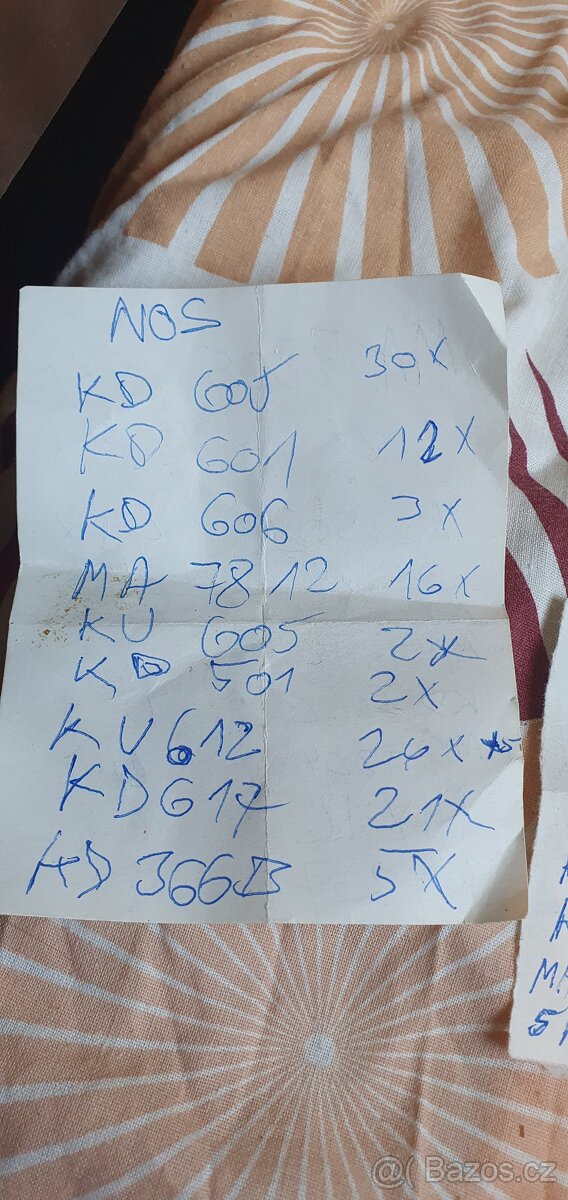 NOS
KD 605 30x
KD 601 12x
KD 606 3x
MA 7812 16x
KU 605 2x
KD 501 2x
KU 612 26x
KD 617 21x
KD 366B 5x
MA
5
@( Bazos.cz